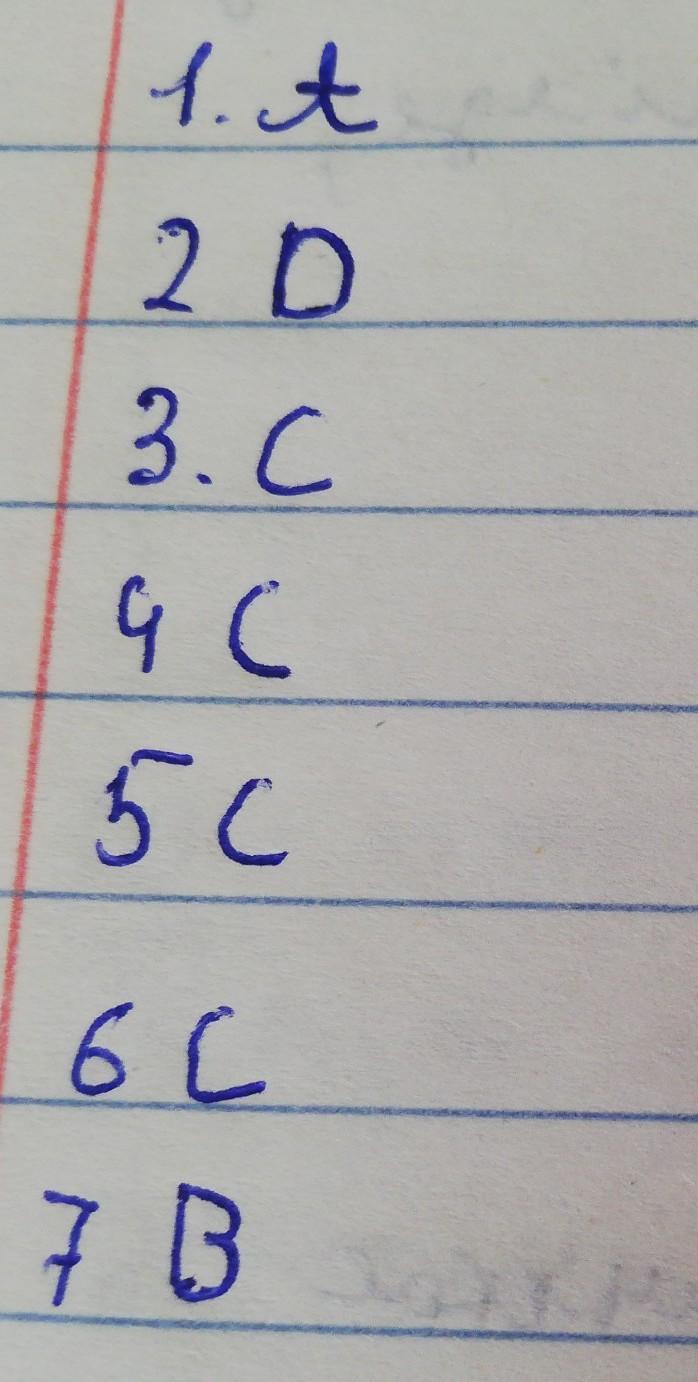 1. A
2 D
3. C
4 C
5 C
6 C
7 B